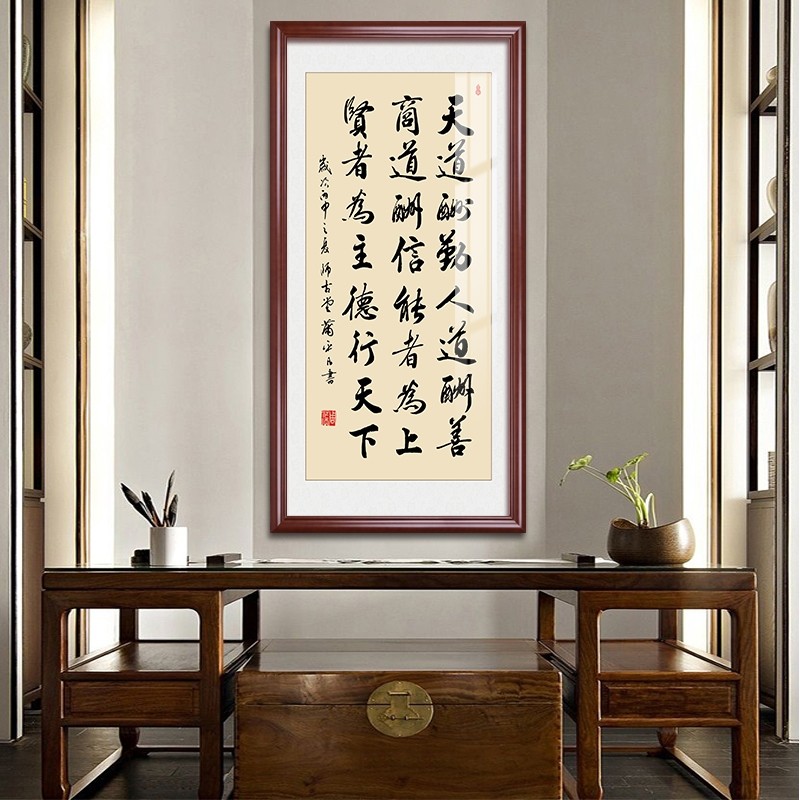 天道酬勤人道酬善
商道酬信能者為上
賢者為主德行天下
歲次丙申之夏師古堂蕭正民書